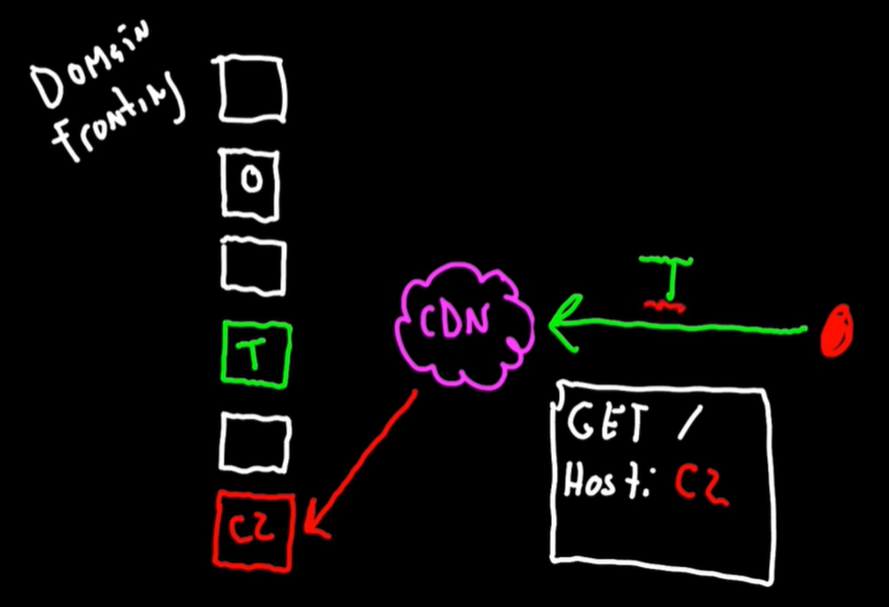 Domain
Fronting
O
T
C2
CDN
T
GET /
Host: C2